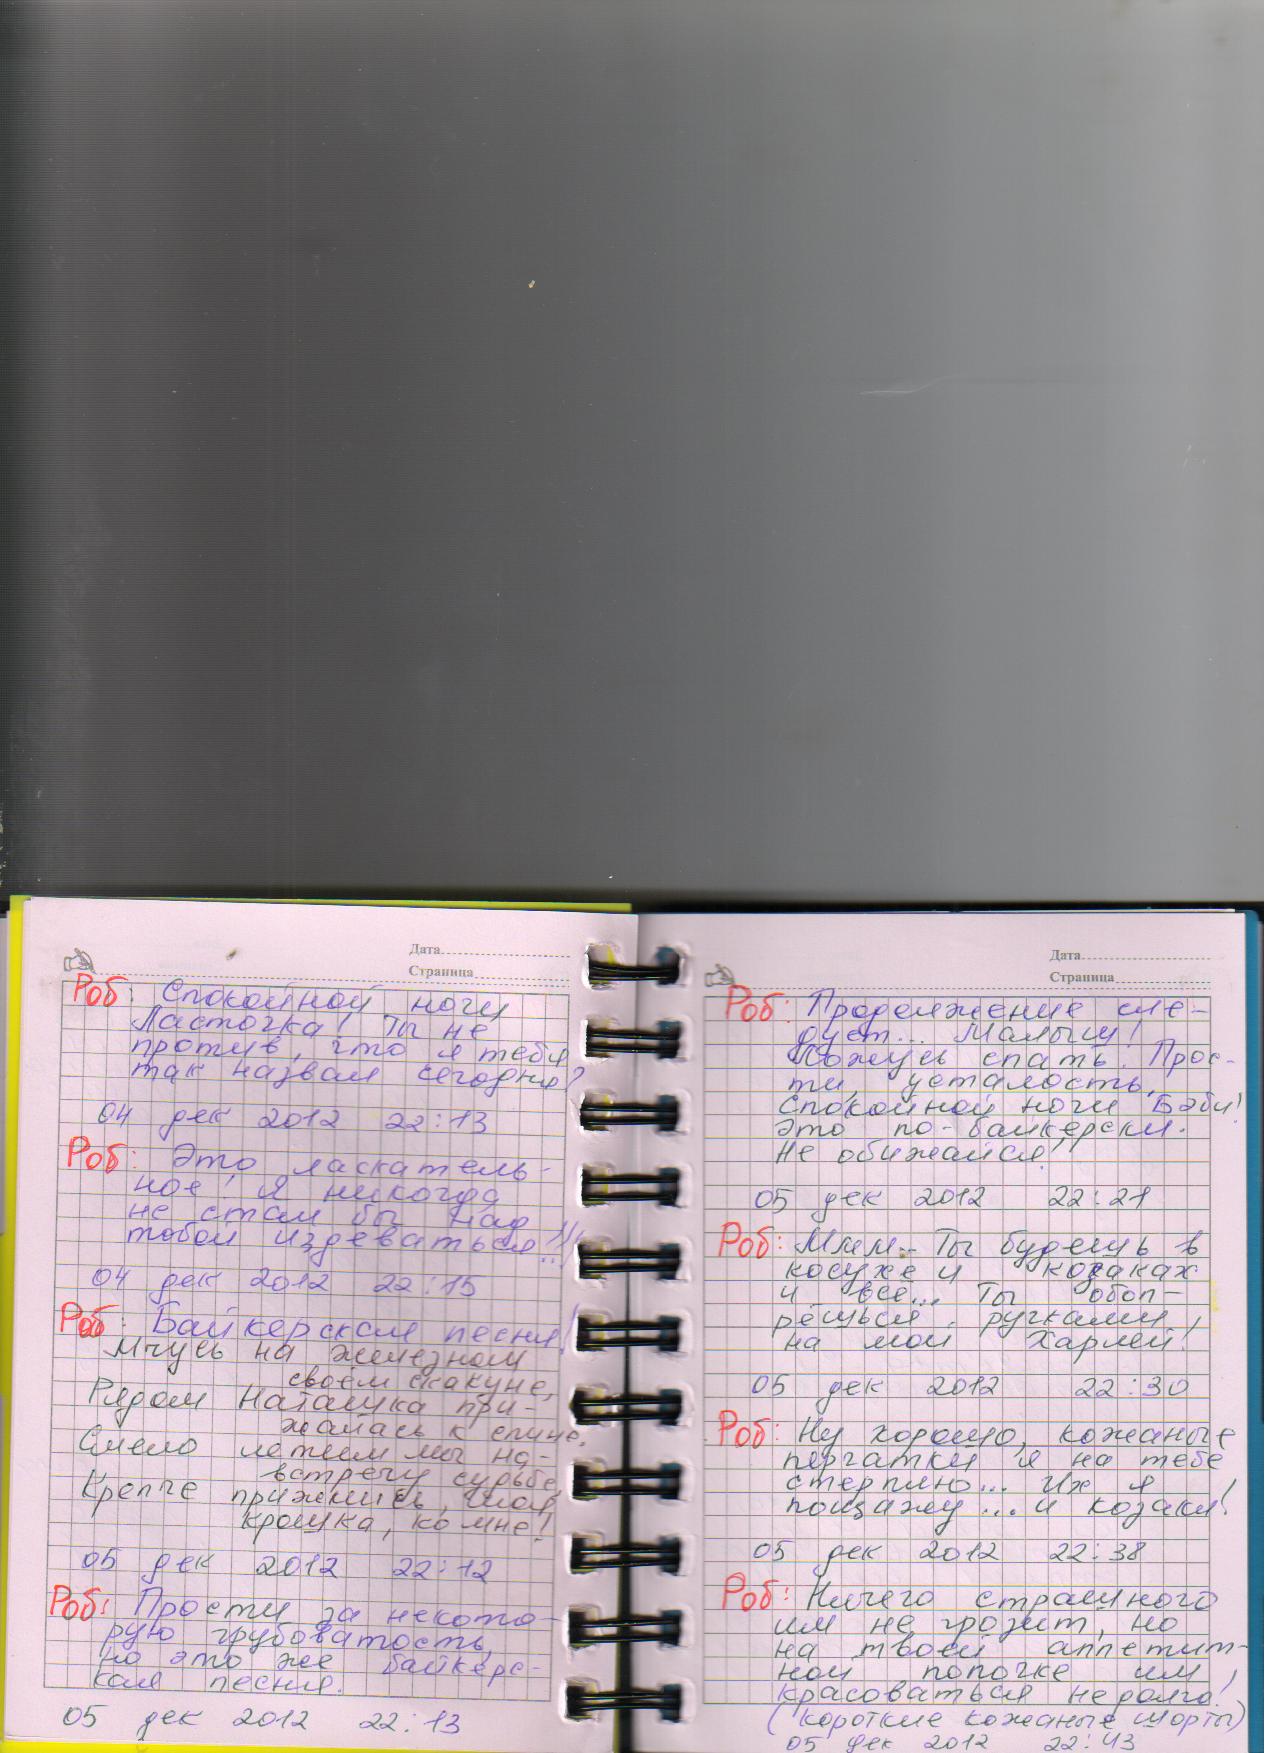 Дата
Страница
Роб: Спокойной ночи
Ласточка! Ты не
против, что я тебя
так назвал сегодня?
04 дек 2012 22:13
Роб: Это ласкатель-
ное! Я никогда
не стал бы над
тобой издеваться!!!
04 дек 2012 22:15
Роб: Байкерская песня!
Мчусь на железном
своём скакуне,
Рядом Наташка при-
жалась к спине.
Смело летим мы на-
встречу судьбе,
Крепче прижмись, моя
крошка, ко мне!
05 дек 2012 22:12
Роб: Прости за некото-
рую грубоватость,
но это же байкерс-
кая песня.
05 дек 2012 22:13
Дата
Страница
Роб: Продолжение сле-
дует... Малыш!
Ложусь спать. Прос-
ти, усталость.
Спокойной ночи Бэби!
Это по-байкерски.
Не обижайся!
05 дек 2012 22:21
Роб: Ммм... Ты будешь в
косухе и козаках
и всё... Ты обоп-
рёшься ручками
на мой Харлей!
05 дек 2012 22:30
Роб: Ну хорошо, кожаные
перчатки я на тебе
стерплю... Их я
пощажу... и козаки!
05 дек 2012 22:38
Роб: Ничего страшного
им не грозит, но
на твоей аппетит-
ной попочке им
красоваться недолго!
(короткие кожаные шорты)
05 дек 2012 22:43